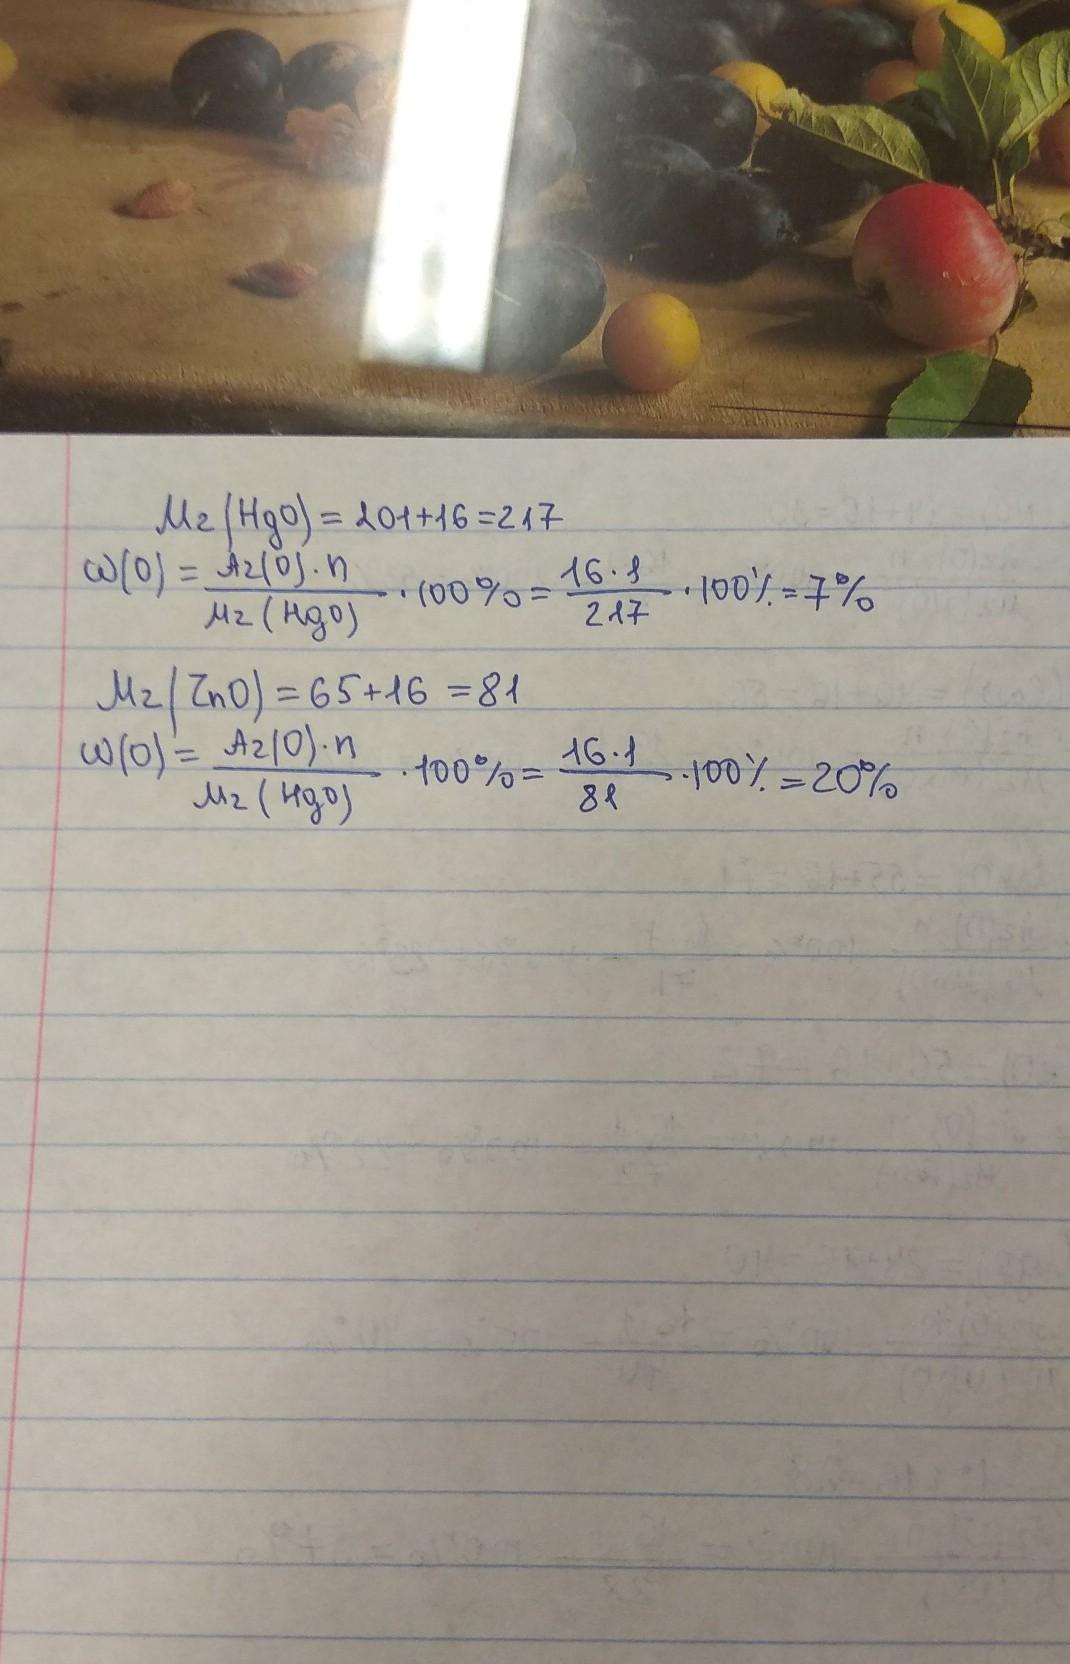 Mr(HgO) = 201+16=217
ω(O) = Ar(O)·n / Mr(HgO) · 100% = 16·1 / 217 · 100% = 7%
Mr(ZnO) = 65+16 = 81
ω(O) = Ar(O)·n / Mr(HgO) · 100% = 16·1 / 81 · 100% = 20%